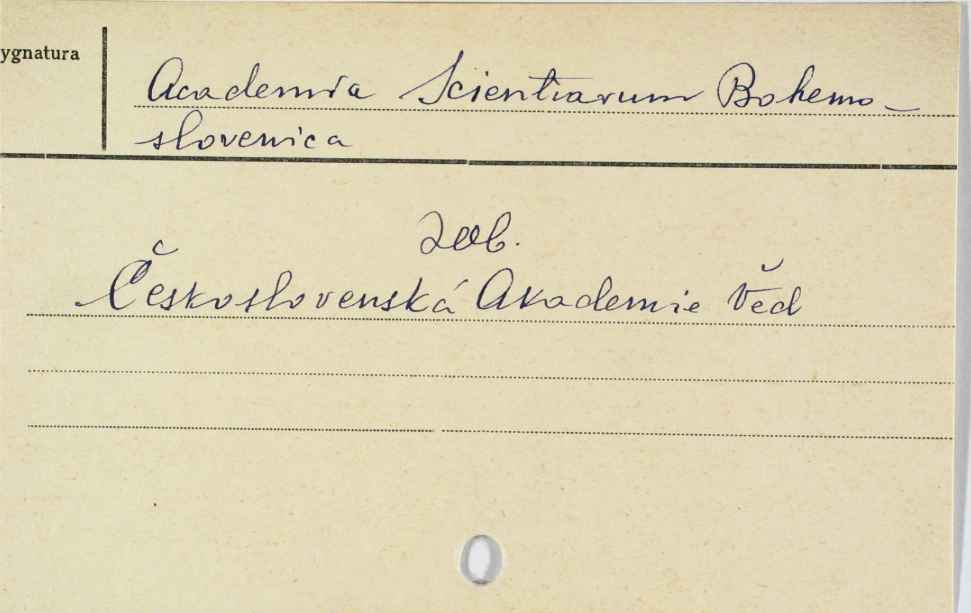 ygnatura
Academia Scientiarum Bohemo-
slovenica
zob.
Československá Akademie Věd